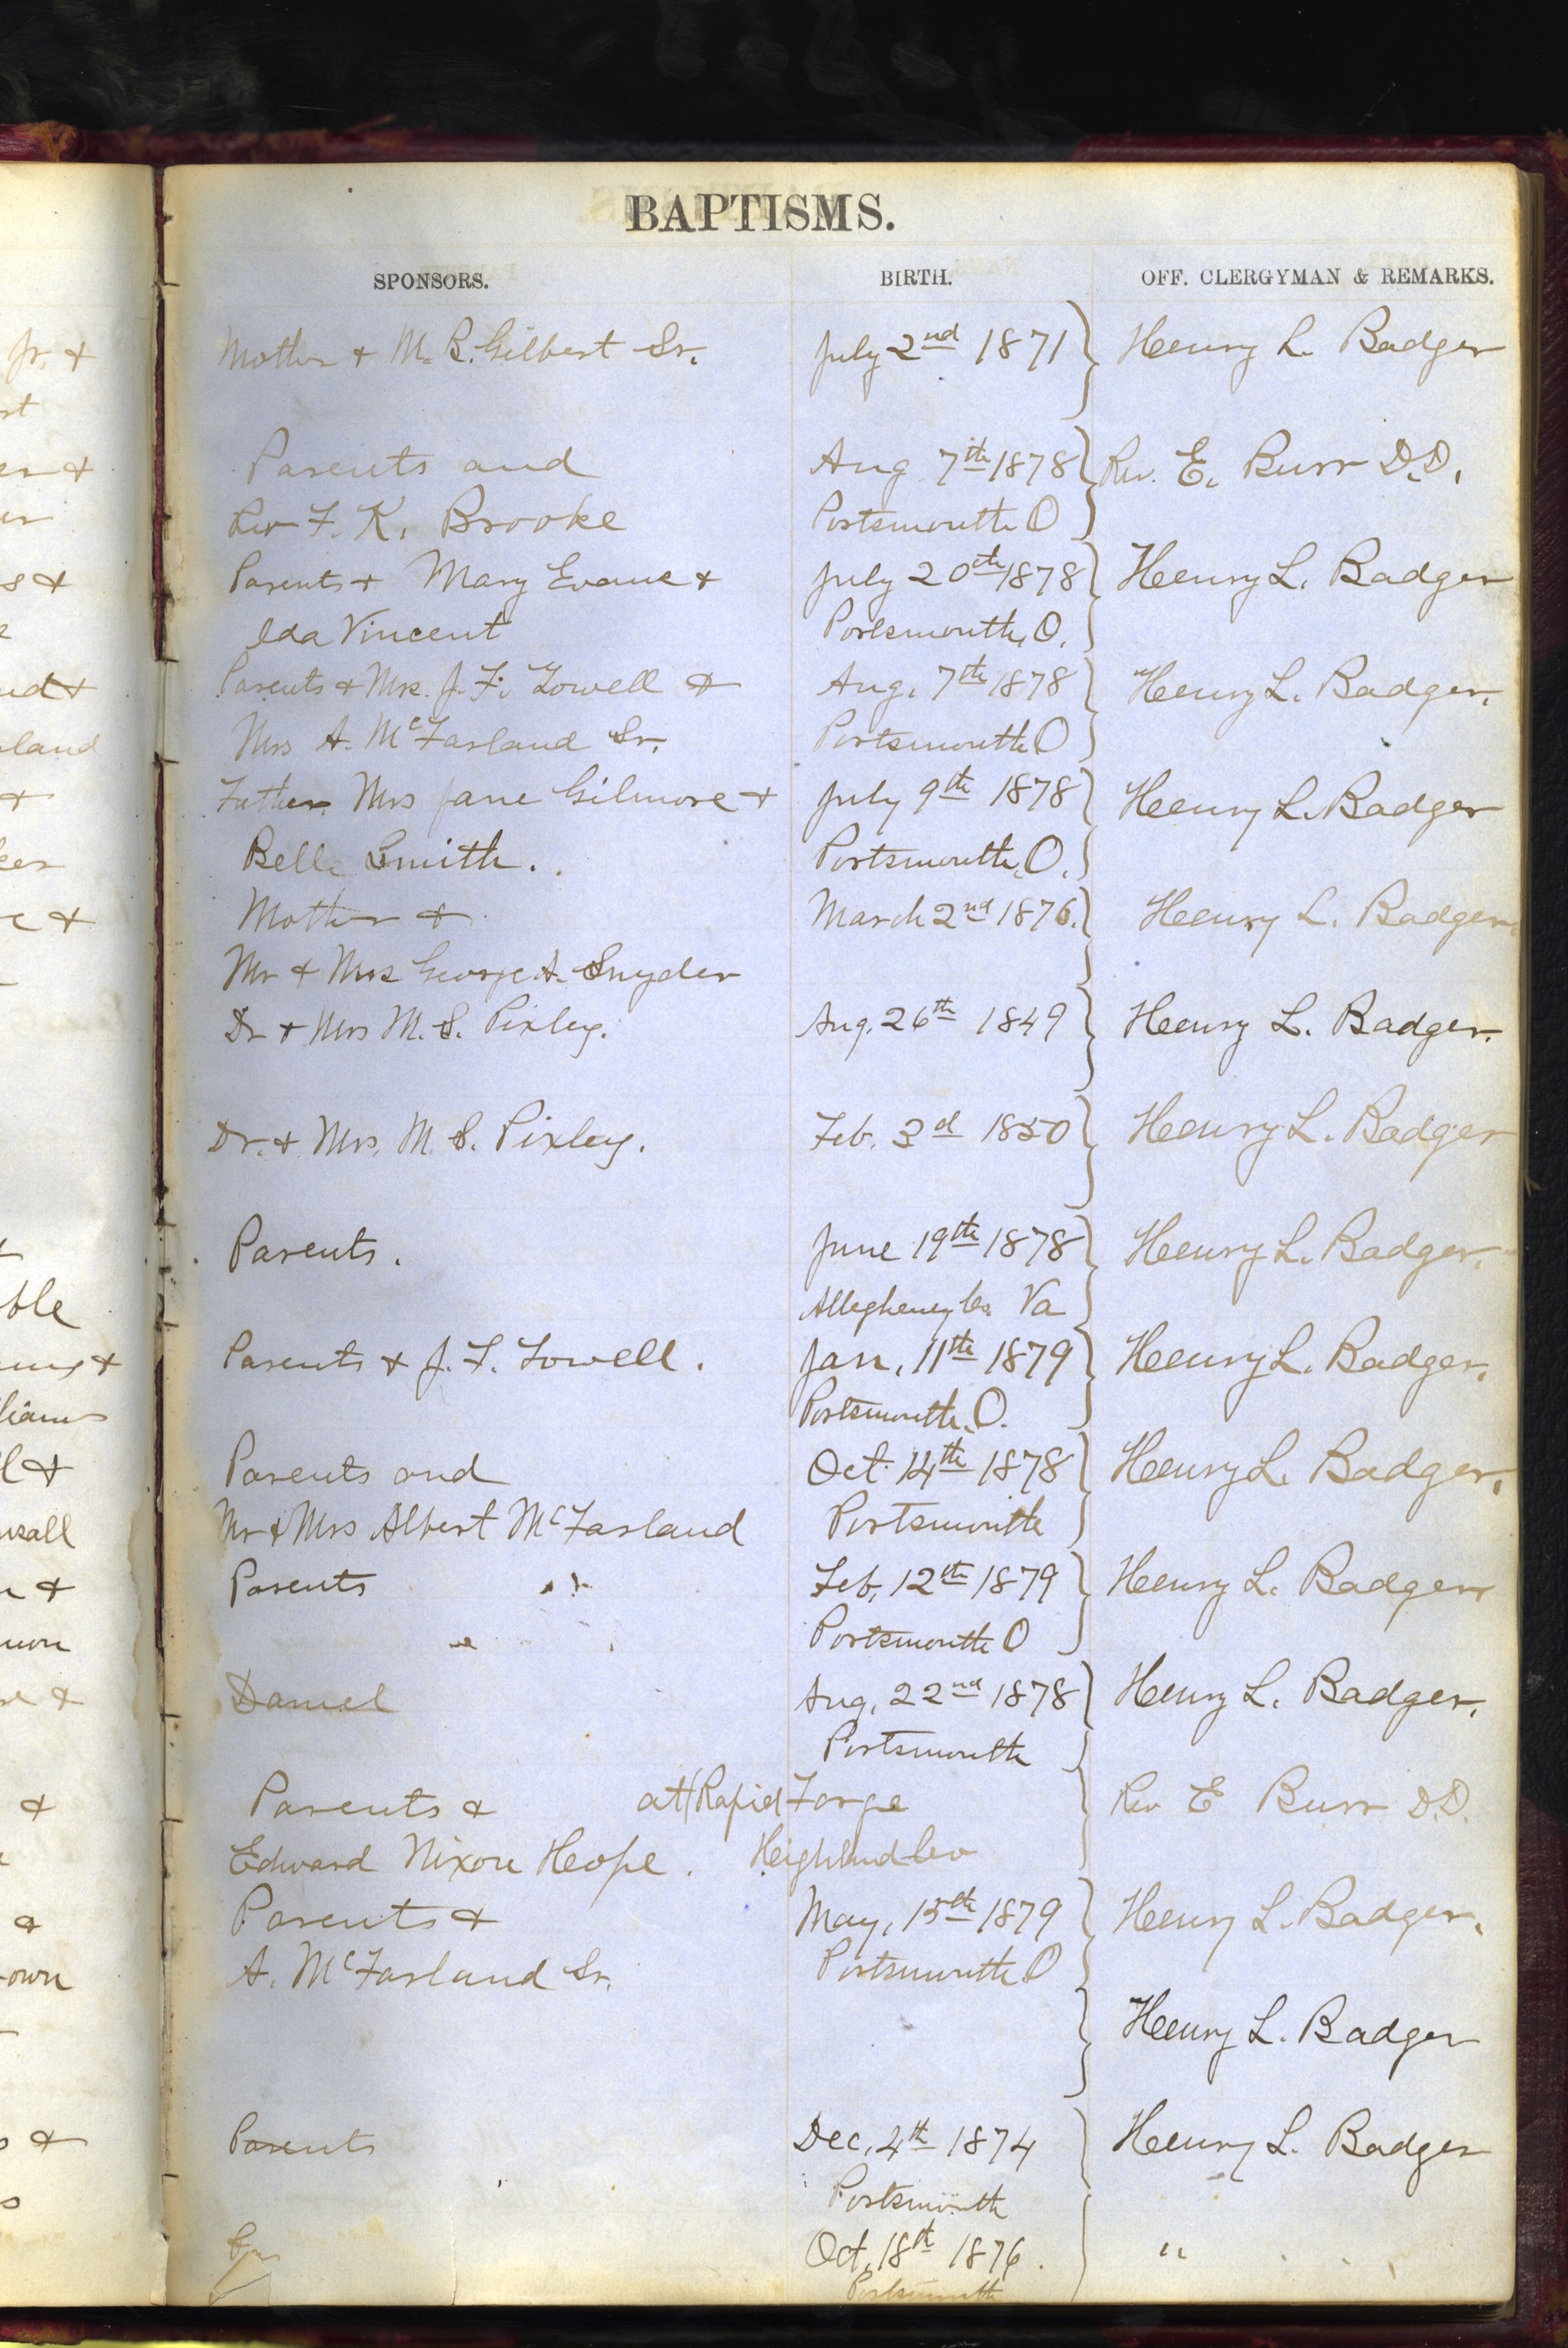 BAPTISMS.
SPONSORS. BIRTH. OFF. CLERGYMAN & REMARKS.
Jr. & Mother & M. B. Gilbert Sr. July 2nd 1871 Henry L. Badger
Parents and Aug 7th 1878 Rev. E. Burr D.D.
Rev F. K. Brooke Portsmouth O
Parents & Mary Evans & July 20th 1878 Henry L. Badger
Ida Vincent Portsmouth, O.
Parents & Mrs. J. F. Towell & Aug. 7th 1878 Henry L. Badger.
Mrs A. McFarland Sr. Portsmouth O
Father Mrs Jane Gilmore & July 9th 1878 Henry L. Badger
Belle Smith. Portsmouth, O.
Mother & March 2nd 1876. Henry L. Badger.
Mr & Mrs George A. Snyder
Dr & Mrs M. S. Pixley. Aug. 26th 1849 Henry L. Badger.
Dr. & Mrs. M. S. Pixley. Feb. 3d 1850 Henry L. Badger
Parents. June 19th 1878 Henry L. Badger.
Allegheney Co. Va
Parents & J. F. Towell. Jan. 11th 1879 Henry L. Badger.
Portsmouth, O.
Parents and Oct. 14th 1878 Henry L. Badger.
Mr & Mrs Albert McFarland Portsmouth
Parents Feb. 12th 1879 Henry L. Badger
Portsmouth O
Daniel Aug. 22nd 1878 Henry L. Badger.
Portsmouth
Parents & at Rapid Forge Rev E Burr D.D.
Edward Nixon Heope. Heighland Co
Parents & May, 15th 1879 Henry L. Badger.
A. McFarland Sr. Portsmouth O
Henry L. Badger
Parents Dec. 4th 1874 Henry L. Badger
Portsmouth
Oct. 18th 1876. "
Portsmouth